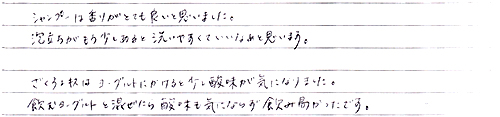 シャンプーは香りがとても良いと思いました。
泡立ちがもう少しあると洗いやすくていいなあと思います。
ざくろ酢はヨーグルトにかけると少し酸味が気になりました。
飲むヨーグルトと混ぜたら酸味も気にならず飲み易かったです。